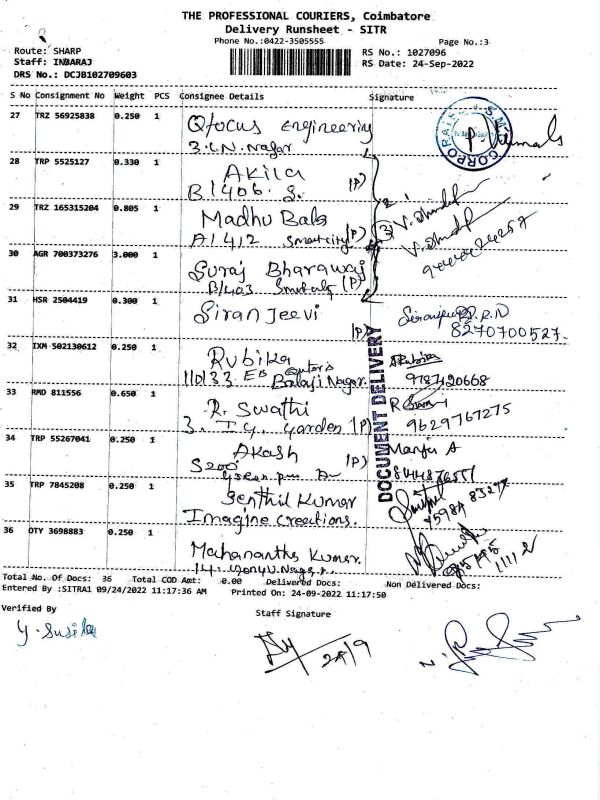 THE PROFESSIONAL COURIERS, Coimbatore
Delivery Runsheet - SITR
Phone No.:0422-3505555
Page No.:3
Route: SHARP
Staff: INBARAJ
DRS No.: DCJB102709603
RS No.: 1027096
RS Date: 24-Sep-2022
S No Consignment No Weight PCS Consignee Details Signature
27 TRZ 56925838 0.250 1 Qfocus Engineering
3. L.N. Nagar
CORPORATE
28 TRP 5525127 0.330 1 Akila
B1406 (P)
29 TRZ 165315204 0.805 1 Madhu Bala
A1412 Smartcity (P)
30 AGR 700373276 3.000 1 Suraj Bharawaj
B/403 (P)
31 HSR 2504419 0.300 1 Siran Jeevi
(P) 8270700527
32 IXM 502130612 0.250 1 Rubika
110/33 EB Balaji Nagar. 9787120668
33 RMD 811556 0.650 1 R. Swathi
3. Garden (P) 9629767275
34 TRP 55267041 0.250 1 Akash (P) Manju A
S200
35 TRP 7845208 0.250 1 Senthil Kumar
Imagine Creations.
36 OTY 3698883 0.250 1 Mahanantha Kumar.
DOCUMENT DELIVERY
Total No. Of Docs: 36 Total COD Amt: 0.00 Delivered Docs: Non Delivered Docs:
Entered By :SITRA1 09/24/2022 11:17:36 AM Printed On: 24-09-2022 11:17:50
Verified By
Staff Signature
Y. Susila
24/9